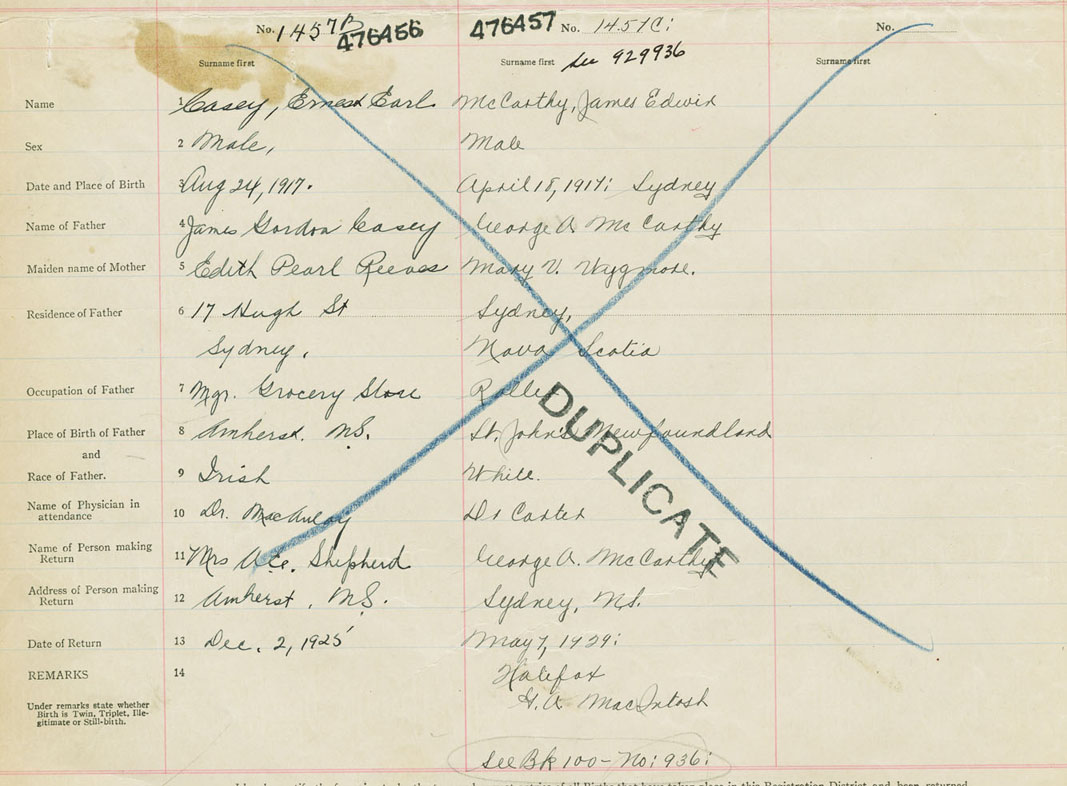 No. 1457B 476456 476457 No. 1457C: No.
Surname first Surname first See 929936 Surname first
Name 1 Casey, Ernest Earl McCarthy, James Edwin
Sex 2 Male, Male
Date and Place of Birth 3 Aug 24, 1917. April 18, 1917: Sydney
Name of Father 4 James Gordon Casey George A. McCarthy
Maiden name of Mother 5 Edith Pearl Reeves Mary V.
Residence of Father 6 17 Hugh St Sydney,
Sydney. Nova Scotia
Occupation of Father 7 Mgr. Grocery Store
Place of Birth of Father 8 Amherst. N.S. St. John's Newfoundland
and
Race of Father. 9 Irish White.
Name of Physician in
attendance 10 Dr. MacAulay Dr Carter
Name of Person making
Return 11 Mrs Shepherd George A. McCarthy
Address of Person making
Return 12 Amherst, N.S. Sydney, N.S.
Date of Return 13 Dec. 2, 1925 May 7, 1929:
REMARKS 14 Halifax
Under remarks state whether
Birth is Twin, Triplet, Ille-
gitimate or Still-birth.
MacIntosh
See Bk 100 - No: 936:
DUPLICATE
of all Births that have taken place in this Registration District and been returned